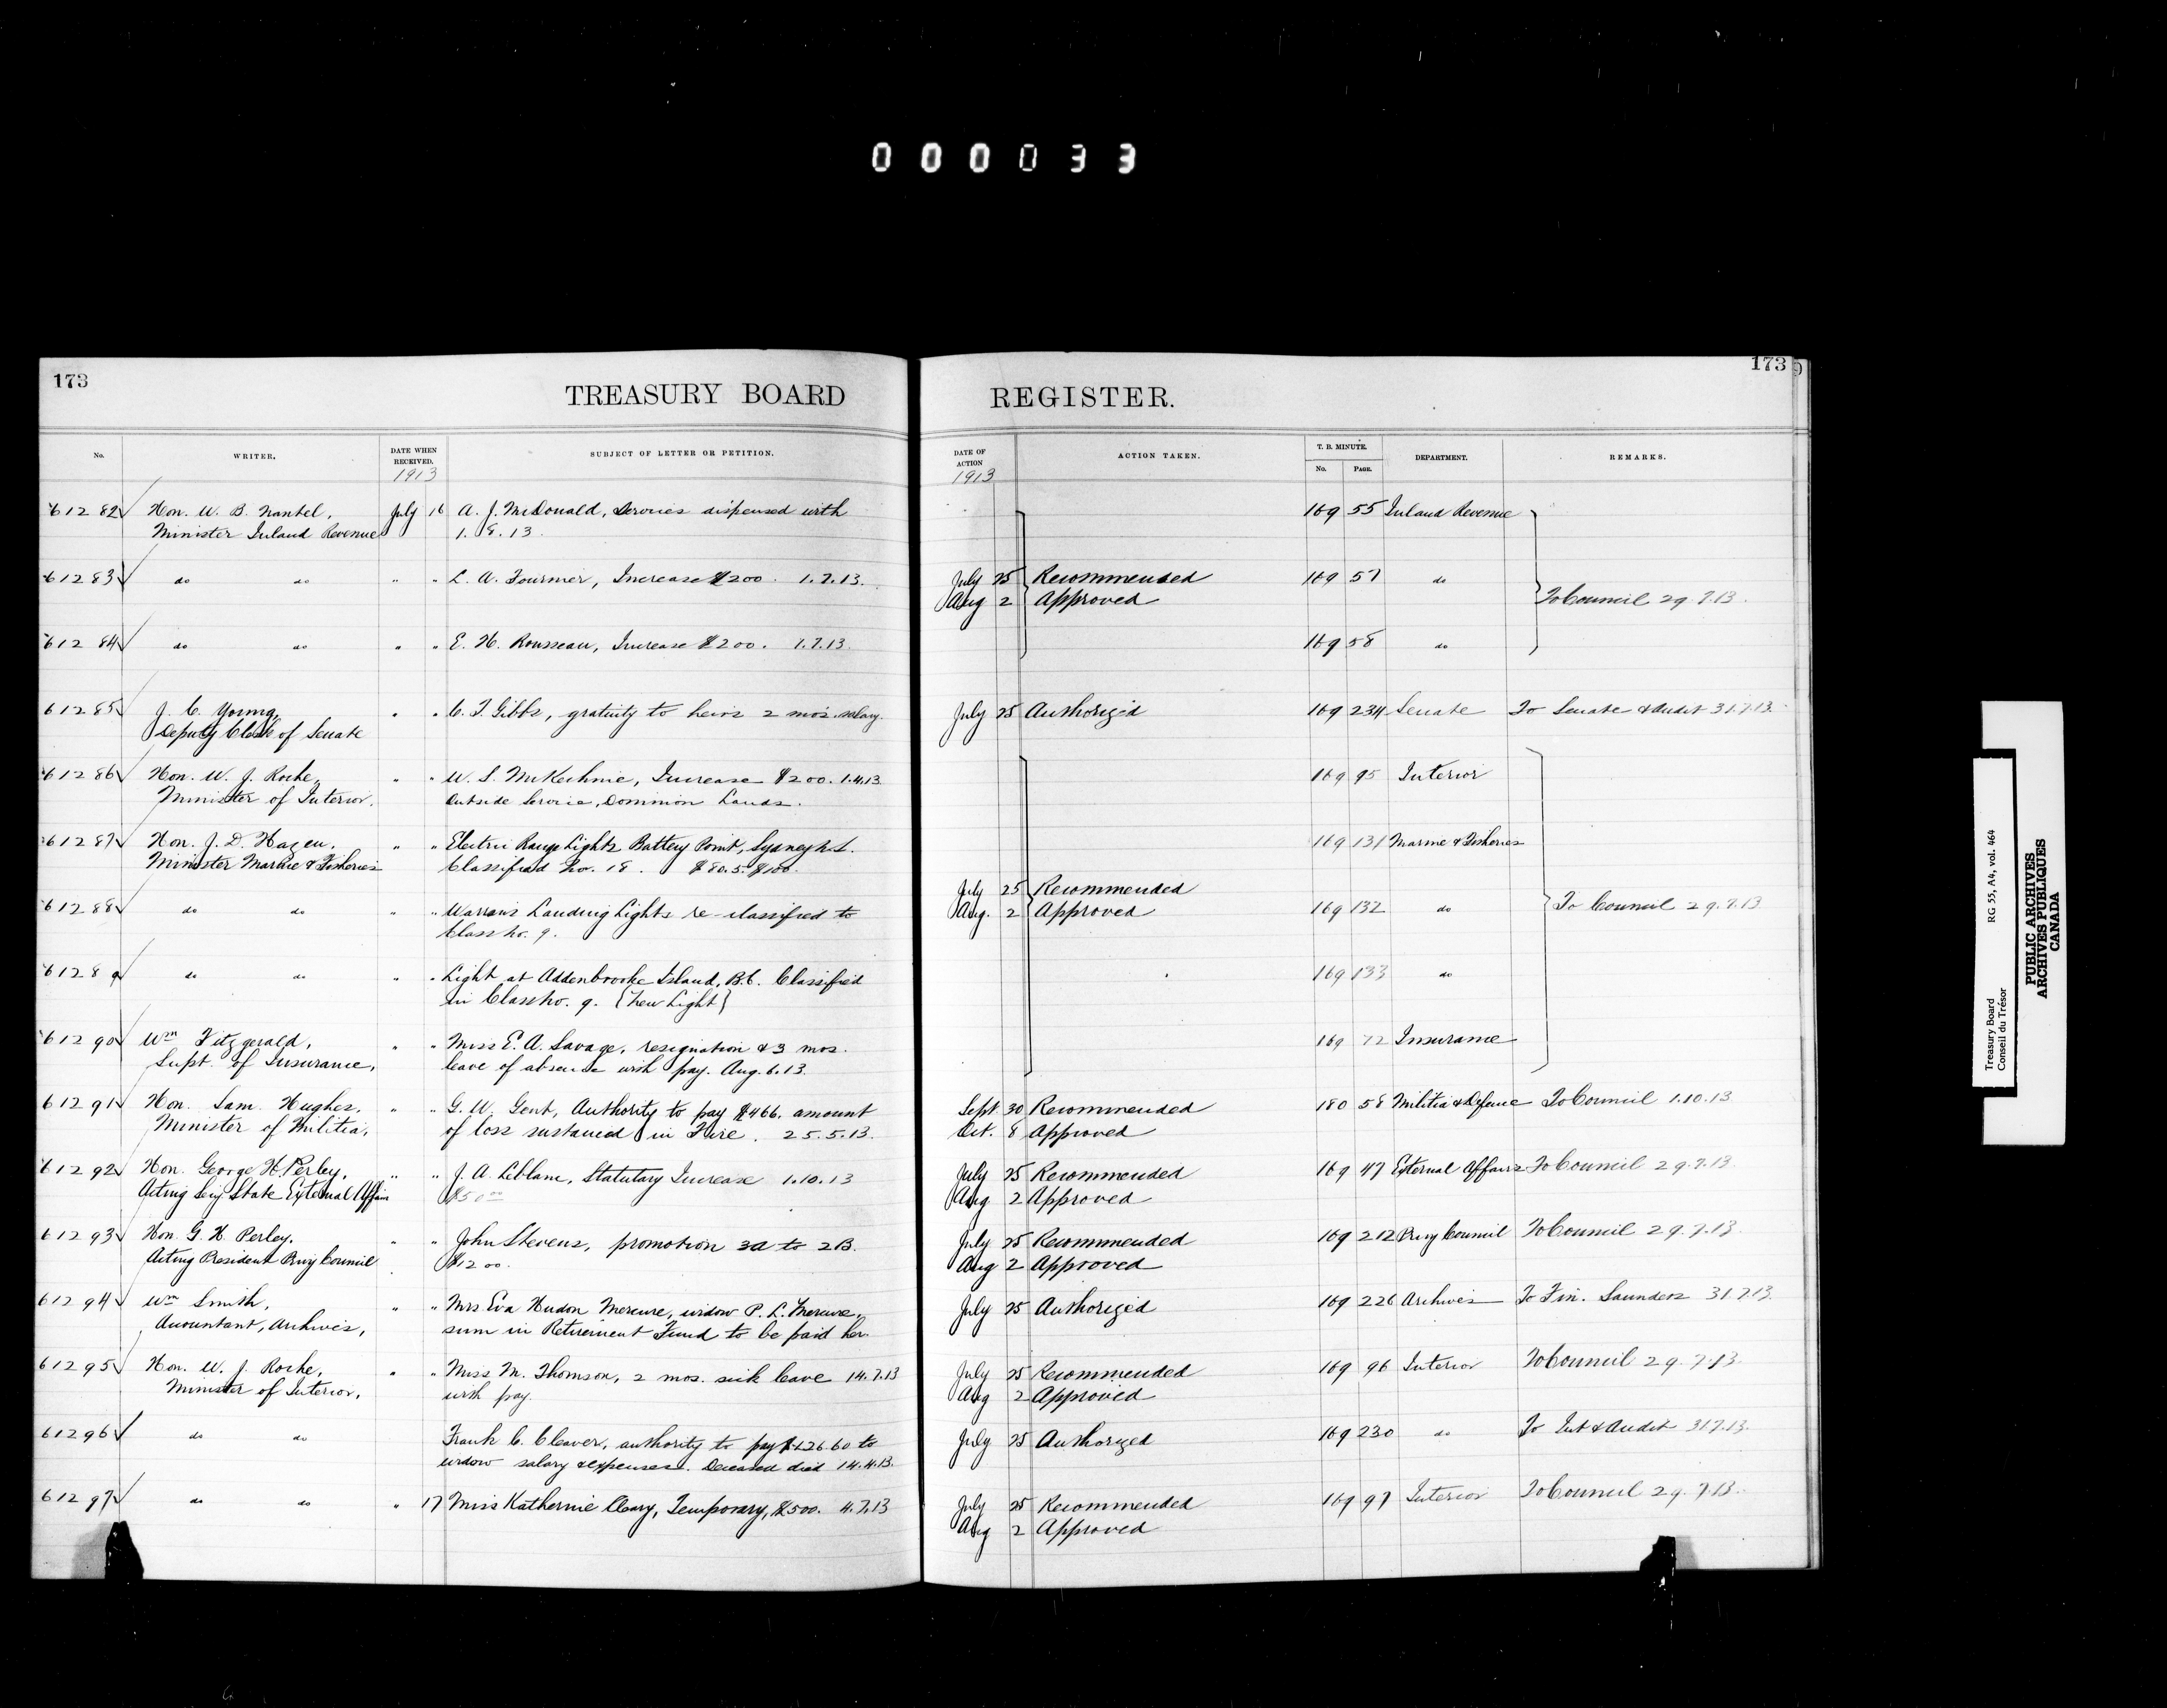 000033
173
TREASURY BOARD REGISTER.
173
No. WRITER. DATE WHEN RECEIVED. SUBJECT OF LETTER OR PETITION. DATE OF ACTION ACTION TAKEN. T. B. MINUTE. No. PAGE. DEPARTMENT. REMARKS.
1913 1913
61282 Hon. W. B. Nantel, July 16 A. J. McDonald, Services dispensed with 169 55 Inland Revenue
Minister Inland Revenue 1. 8. 13.
61283 do do " " L. A. Fournier, Increase $200. 1.7.13. July 25 Recommended 169 57 do
Aug 2 Approved To Council 29.7.13.
61284 do do " " E. H. Rousseau, Increase $200. 1.7.13. 169 58 do
61285 J. C. Young, " " C. F. Gibbs, gratuity to heirs 2 mos. salary. July 25 Authorized 169 234 Senate To Senate & Audit 31.7.13.
Deputy Clerk of Senate
61286 Hon. W. J. Roche, " " W. S. McKechnie, Increase $200. 1.4.13. 169 95 Interior
Minister of Interior. Outside Service, Dominion Lands.
61287 Hon. J. D. Hazen, " " Electric Range Lights Battery Point, Sydney N.S. 169 131 Marine & Fisheries
Minister Marine & Fisheries Classified No. 18. $80.5.$100.
July 25 Recommended
61288 do do " " Warrens Landing Lights re-classified to Aug. 2 Approved 169 132 do To Council 29.7.13
Class No. 9.
61289 do do " " Light at Addenbrooke Island, B.C. Classified 169 133 do
in Class No. 9. {New Light}
61290 Wm Fitzgerald, " " Miss E. A. Savage, resignation & 3 mos. 169 72 Insurance
Supt. of Insurance, leave of absence with pay. Aug. 6.13.
61291 Hon. Sam. Hughes, " " G. W. Gent, Authority to pay $466. amount Sept. 30 Recommended 180 58 Militia & Defence To Council 1.10.13
Minister of Militia, of loss sustained in Fire. 25.5.13. Oct. 8 Approved
61292 Hon. George H. Perley, " " J. A. Leblanc, Statutary Increase 1.10.13 July 25 Recommended 169 47 External Affairs To Council 29.7.13
Acting Secy State External Affairs $50 00 Aug 2 Approved
61293 Hon. G. H. Perley, " " John Stevens, promotion 3A to 2B. July 25 Recommended 169 212 Privy Council To Council 29.7.13.
Acting President Privy Council $1200. Aug 2 Approved
61294 Wm Smith, " " Mrs. Eva Hudon Mercure, widow P. L. Mercure, July 25 Authorized 169 226 Archives To Fin. Saunders 31.7.13.
Accountant, Archives, sum in Retirement Fund to be paid her.
61295 Hon. W. J. Roche, " " Miss M. Thomson, 2 mos. sick leave 14.7.13 July 25 Recommended 169 96 Interior To Council 29.7.13.
Minister of Interior, with pay. Aug 2 Approved
61296 do do Frank C. Cleaver, authority to pay $126.60 to July 25 Authorized 169 230 do To Int & Audit 31.7.13.
widow salary & expenses. Deceased died 14.4.13.
61297 do do " 17 Miss Katherine Cleary, Temporary, $500. 4.7.13 July 25 Recommended 169 97 Interior To Council 29.7.13.
Aug 2 Approved
Treasury Board RG 55, A4, vol. 464
Conseil du Trésor
PUBLIC ARCHIVES
ARCHIVES PUBLIQUES
CANADA